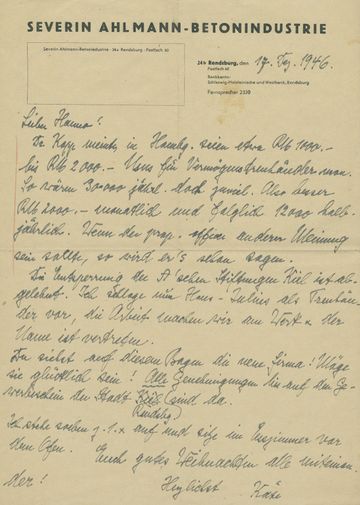 SEVERIN AHLMANN-BETONINDUSTRIE
Severin Ahlmann-Betonindustrie · 24b Rendsburg · Postfach 60
24b Rendsburg, den 17. Dez. 1946.
Postfach 60
Bankkonto:
Schleswig-Holsteinische und Westbank, Rendsburg
Fernsprecher 2330
Lieber Hanno!
Dr Kapp meinte, in Hambg. seien etwa RM 1000.-
bis RM 2000.- für Vermögenstreuhänder
So wären 30000 jährl. doch zuviel. Also besser
RM 2000.- monatlich und folglich 12000 halb-
jährlich. Wenn der anderer Meinung
sein sollte, so wird er's schon sagen.
Die Entsperrung der A'schen Stiftungen Kiel ist ab-
gelehnt. Ich schlage nun Hans-Julius als Treuhän
der vor, die Arbeit machen wir am Werk & der
Name ist vertreten.
Du siehst auf diesem Bogen die neue Firma! Möge
sie glücklich sein! Alle Genehmigungen bis auf den Ge-
werbeschein der Stadt Kiel sind da.
(Rendsbg.)
Ich stehe soeben z. 1. x auf und sitze im Esszimmer vor
dem Ofen. Euch gutes Weihnachten alle miteinan
der!
Herzlichst Käte